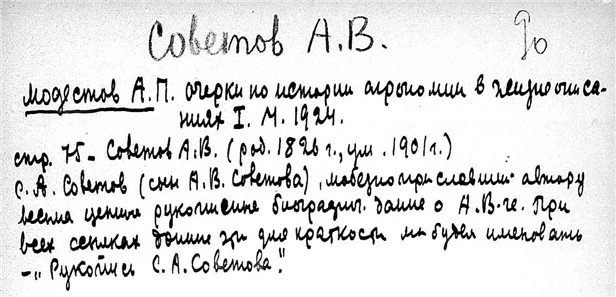 Советов А.В.
Модестов А.П. очерки по истории агрономии в жизнеописа-
ниях I. М. 1924.
стр. 75 - Советов А.В. (род. 1826 г., ум. 1901 г.)
С.А. Советов (сын А.В. Советова), любезно приславший автору
весьма ценные рукописные биографич. данные о А.В-че. При
всех ссылках данные эти для краткости мы будем именовать
- „Рукопись С.А. Советова".